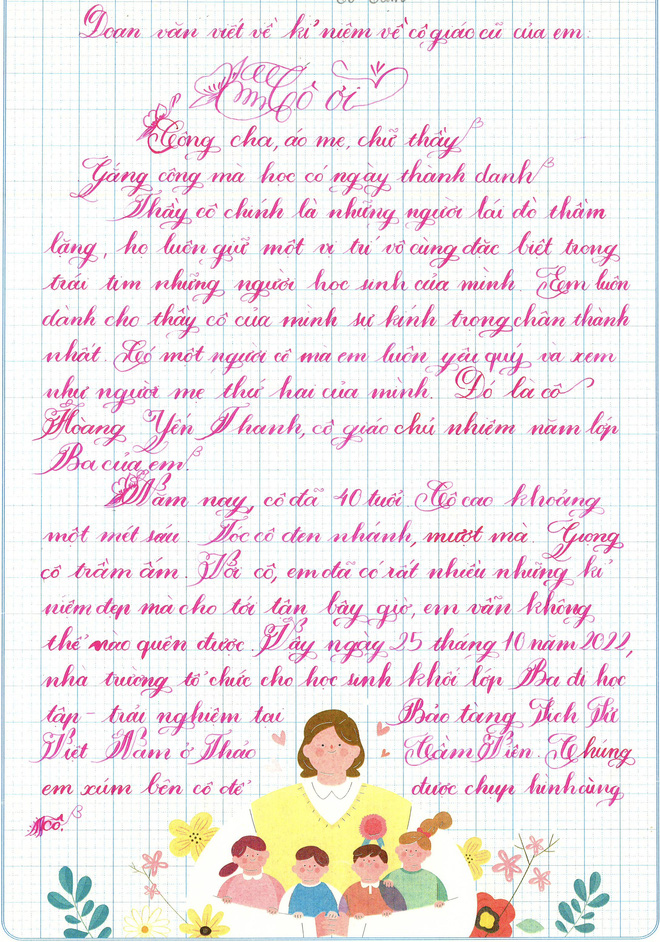 Đoạn văn viết về kỉ niệm về cô giáo cũ của em:
Cô ơi
Công cha, áo mẹ, chữ thầy
Gắng công mà học có ngày thành danh
Thầy cô chính là những người lái đò thầm
lặng, họ luôn giữ một vị trí vô cùng đặc biệt trong
trái tim những người học sinh của mình. Em luôn
dành cho thầy cô của mình sự kính trọng chân thành
nhất. Có một người cô mà em luôn yêu quý và xem
như người mẹ thứ hai của mình. Đó là cô
Hoàng Yến Thanh, cô giáo chủ nhiệm năm lớp
Ba của em.
Năm nay, cô đã 40 tuổi. Cô cao khoảng
một mét sáu. Tóc cô đen nhánh, mượt mà. Giọng
cô trầm ấm. Với cô, em đã có rất nhiều những kỉ
niệm đẹp mà cho tới tận bây giờ, em vẫn không
thể nào quên được. Vậy ngày 25 tháng 10 năm 2022,
nhà trường tổ chức cho học sinh khối lớp Ba đi học
tập - trải nghiệm tại Bảo tàng Lịch Sử
Việt Nam ở Thảo Cầm Viên. Chúng
em xúm bên cô để được chụp hình cùng
cô.